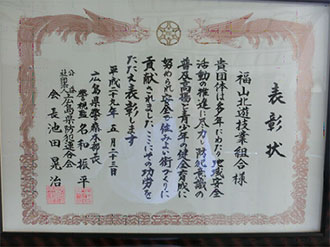 表彰状
福山北遊技業組合様
貴団体は多年にわたり地域安全
活動の推進に尽力し防犯意識の
普及高揚と青少年の健全育成に
努められ安全で住みよい街づくりに
貢献されましたここにその功労を
たたえ表彰します
平成二十九年五月二十三日
広島県警察本部長
警視監名和振平
公益社団法人広島県防犯連合会
会長池田晃治